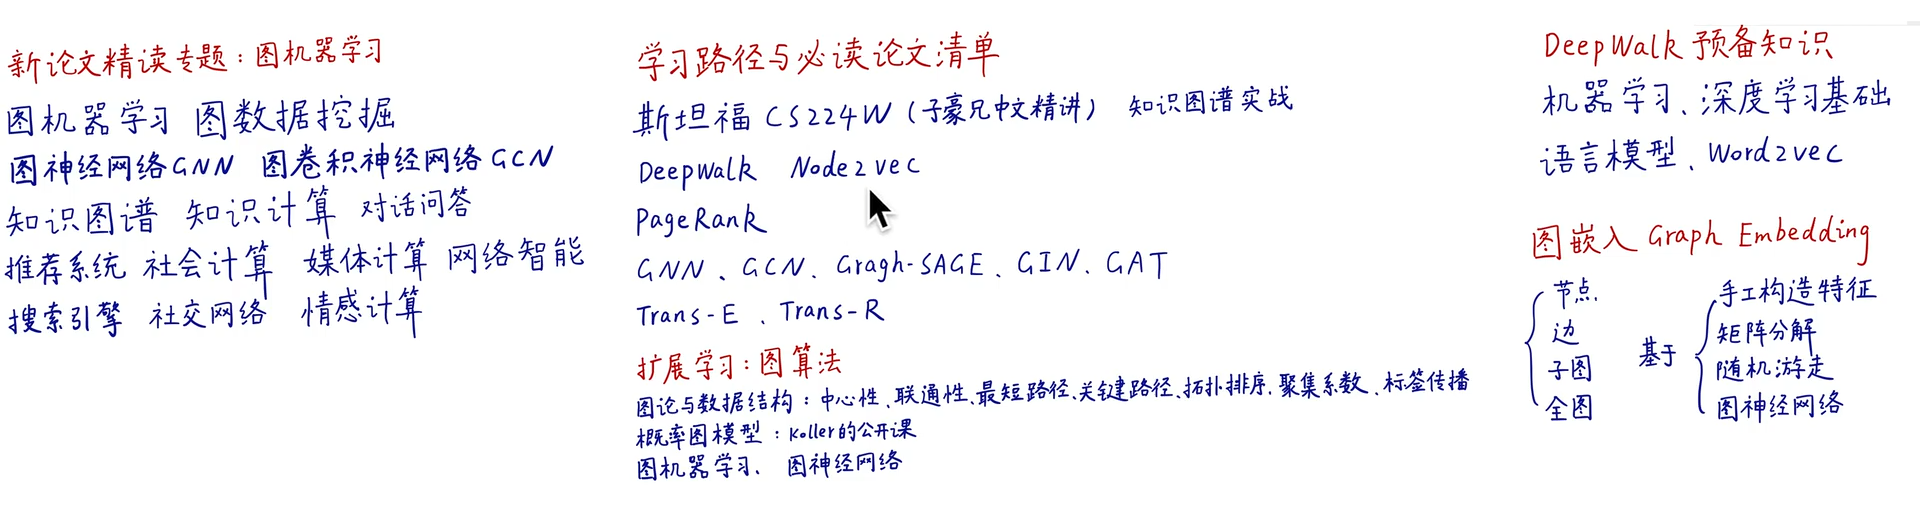 新论文精读专题：图机器学习
图机器学习 图数据挖掘
图神经网络GNN 图卷积神经网络GCN
知识图谱 知识计算 对话问答
推荐系统 社会计算 媒体计算 网络智能
搜索引擎 社交网络 情感计算
学习路径与必读论文清单
斯坦福 CS224W（子豪兄中文精讲） 知识图谱实战
DeepWalk Node2vec
PageRank
GNN、GCN、Gragh-SAGE、GIN、GAT
Trans-E、Trans-R
扩展学习：图算法
图论与数据结构：中心性、联通性、最短路径、关键路径、拓扑排序、聚集系数、标签传播
概率图模型：Koller的公开课
图机器学习、图神经网络
DeepWalk 预备知识
机器学习、深度学习基础
语言模型、Word2vec
图嵌入 Graph Embedding
节点
边
子图
全图
基于
手工构造特征
矩阵分解
随机游走
图神经网络